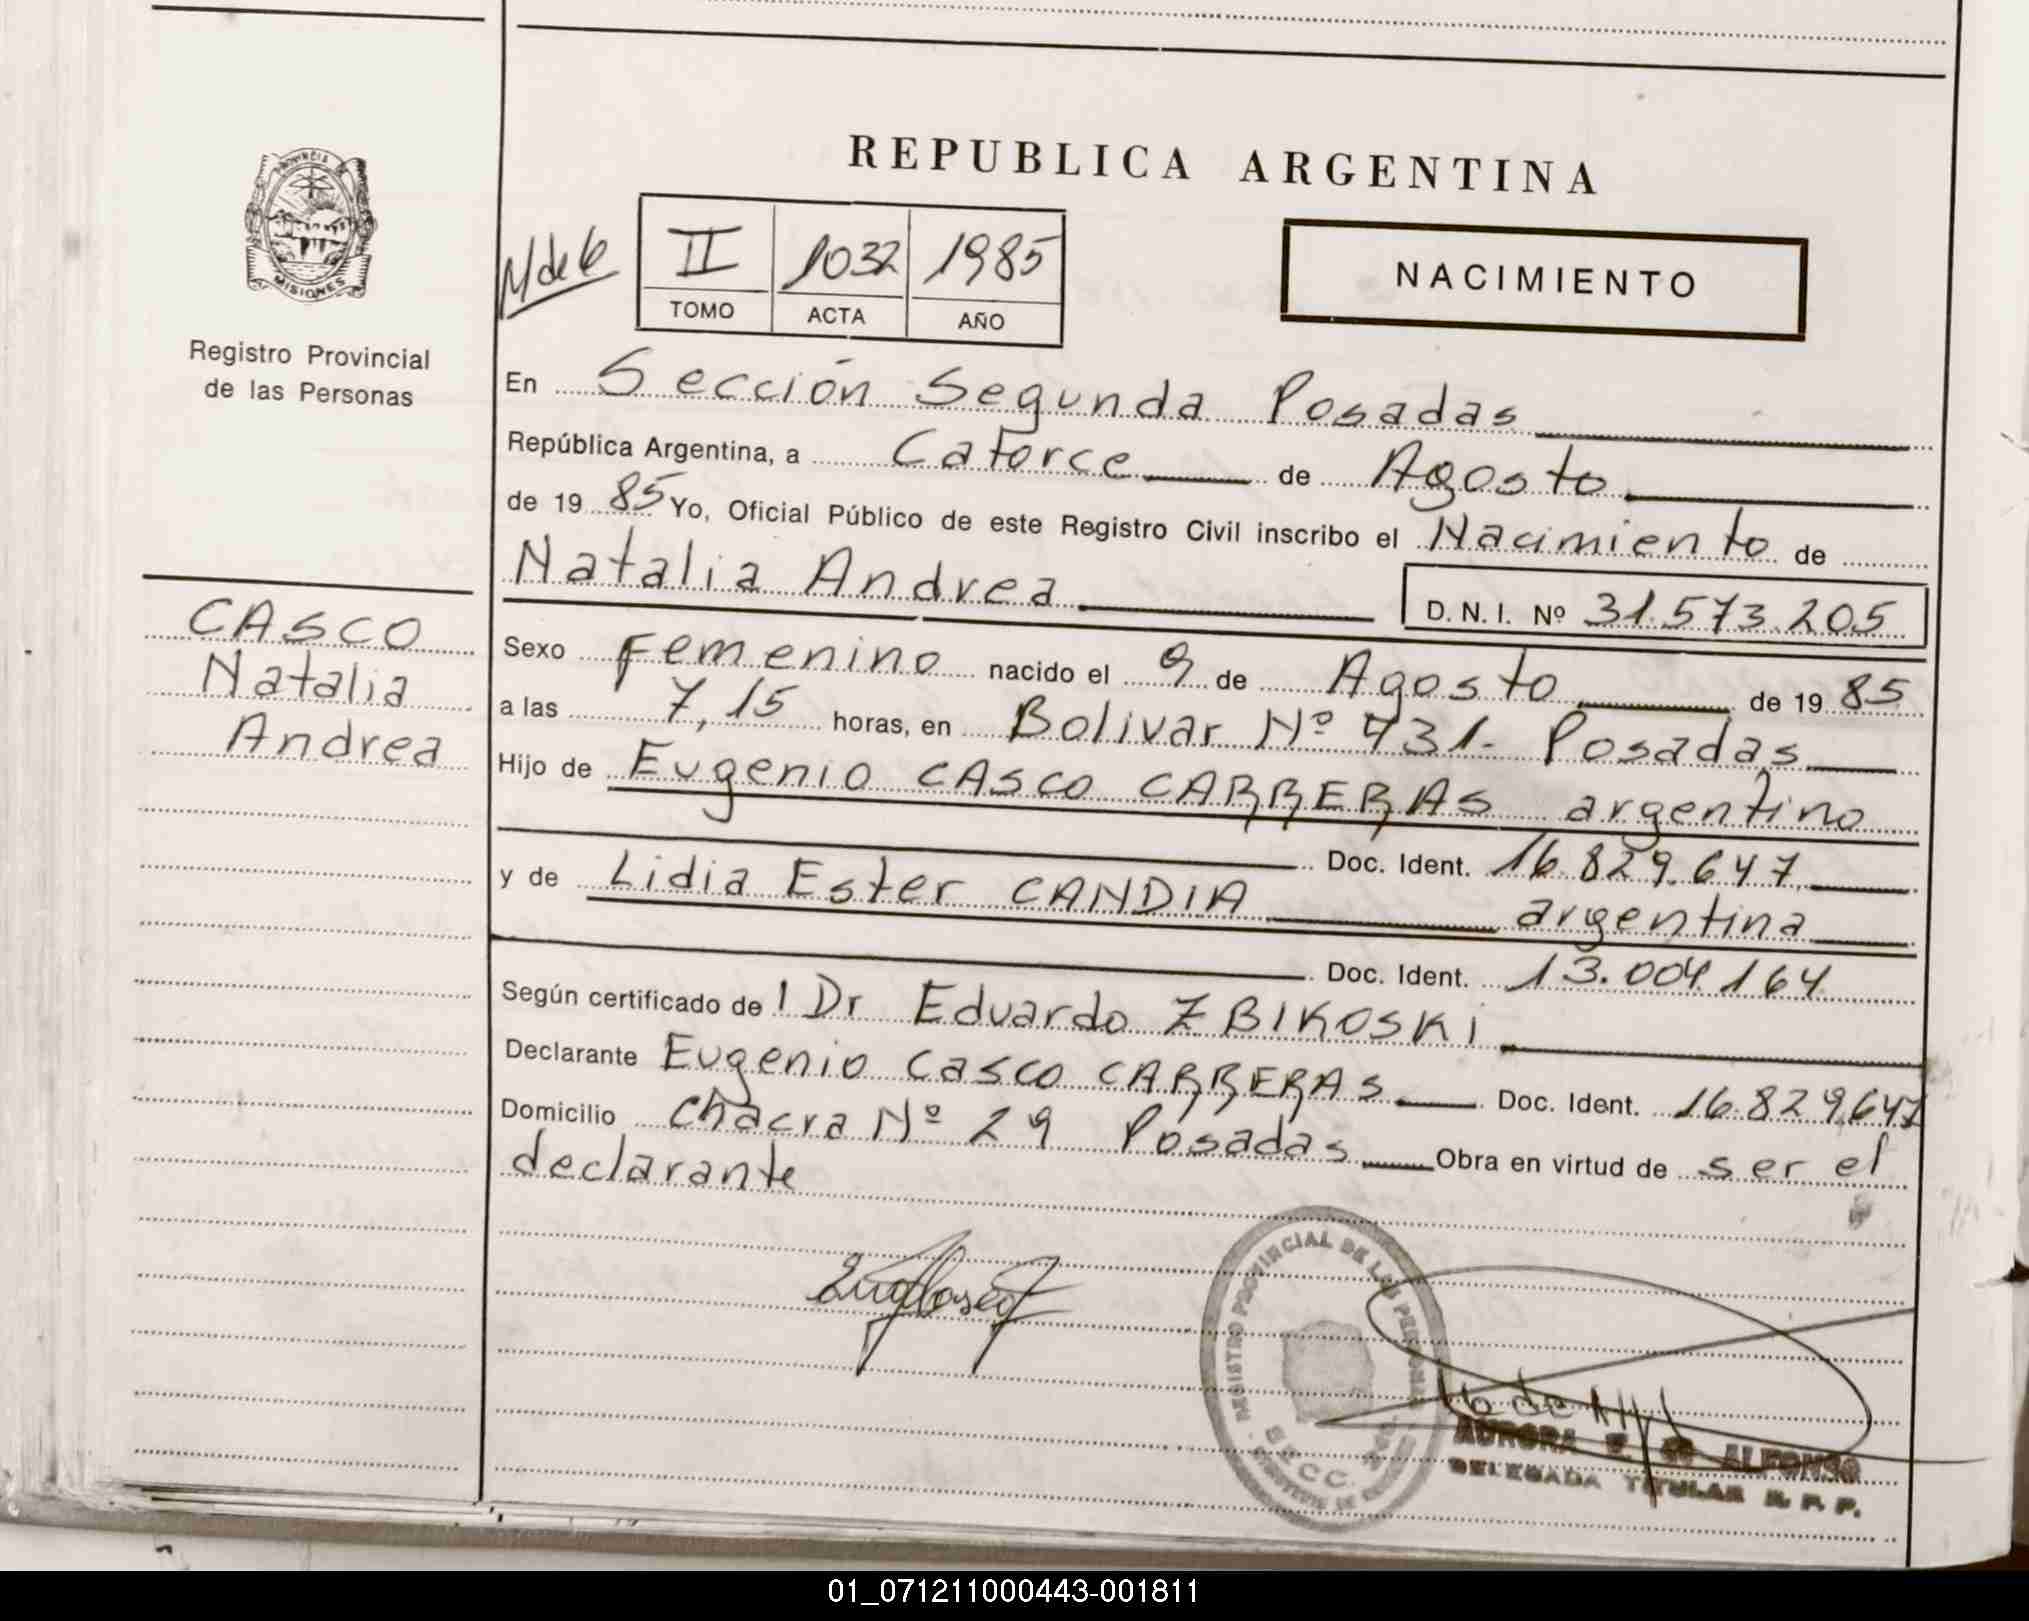 PROVINCIA
MISIONES
Registro Provincial
de las Personas
CASCO
Natalia
Andrea
REPUBLICA ARGENTINA
II 1032 1985
TOMO ACTA AÑO
NACIMIENTO
En Sección Segunda Posadas
República Argentina, a Catorce de Agosto
de 19 85 Yo, Oficial Público de este Registro Civil inscribo el Nacimiento de
Natalia Andrea D. N. I. Nº 31.573.205
Sexo Femenino nacido el 9 de Agosto de 19 85
a las 7,15 horas, en Bolivar Nº 431- Posadas
Hijo de Eugenio CASCO CARRERAS argentino
Doc. Ident. 16.829.647
y de Lidia Ester CANDIA argentina
Doc. Ident. 13.004.164
Según certificado de l Dr Eduardo ZBIKOSKI
Declarante Eugenio Casco CARRERAS Doc. Ident. 16.829.647
Domicilio Chacra Nº 29 Posadas Obra en virtud de ser el
declarante
REGISTRO PROVINCIAL DE LAS PERSONAS
SECC.
AURORA E. de ALFONSO
DELEGADA TITULAR R. P. P.
01_071211000443-001811